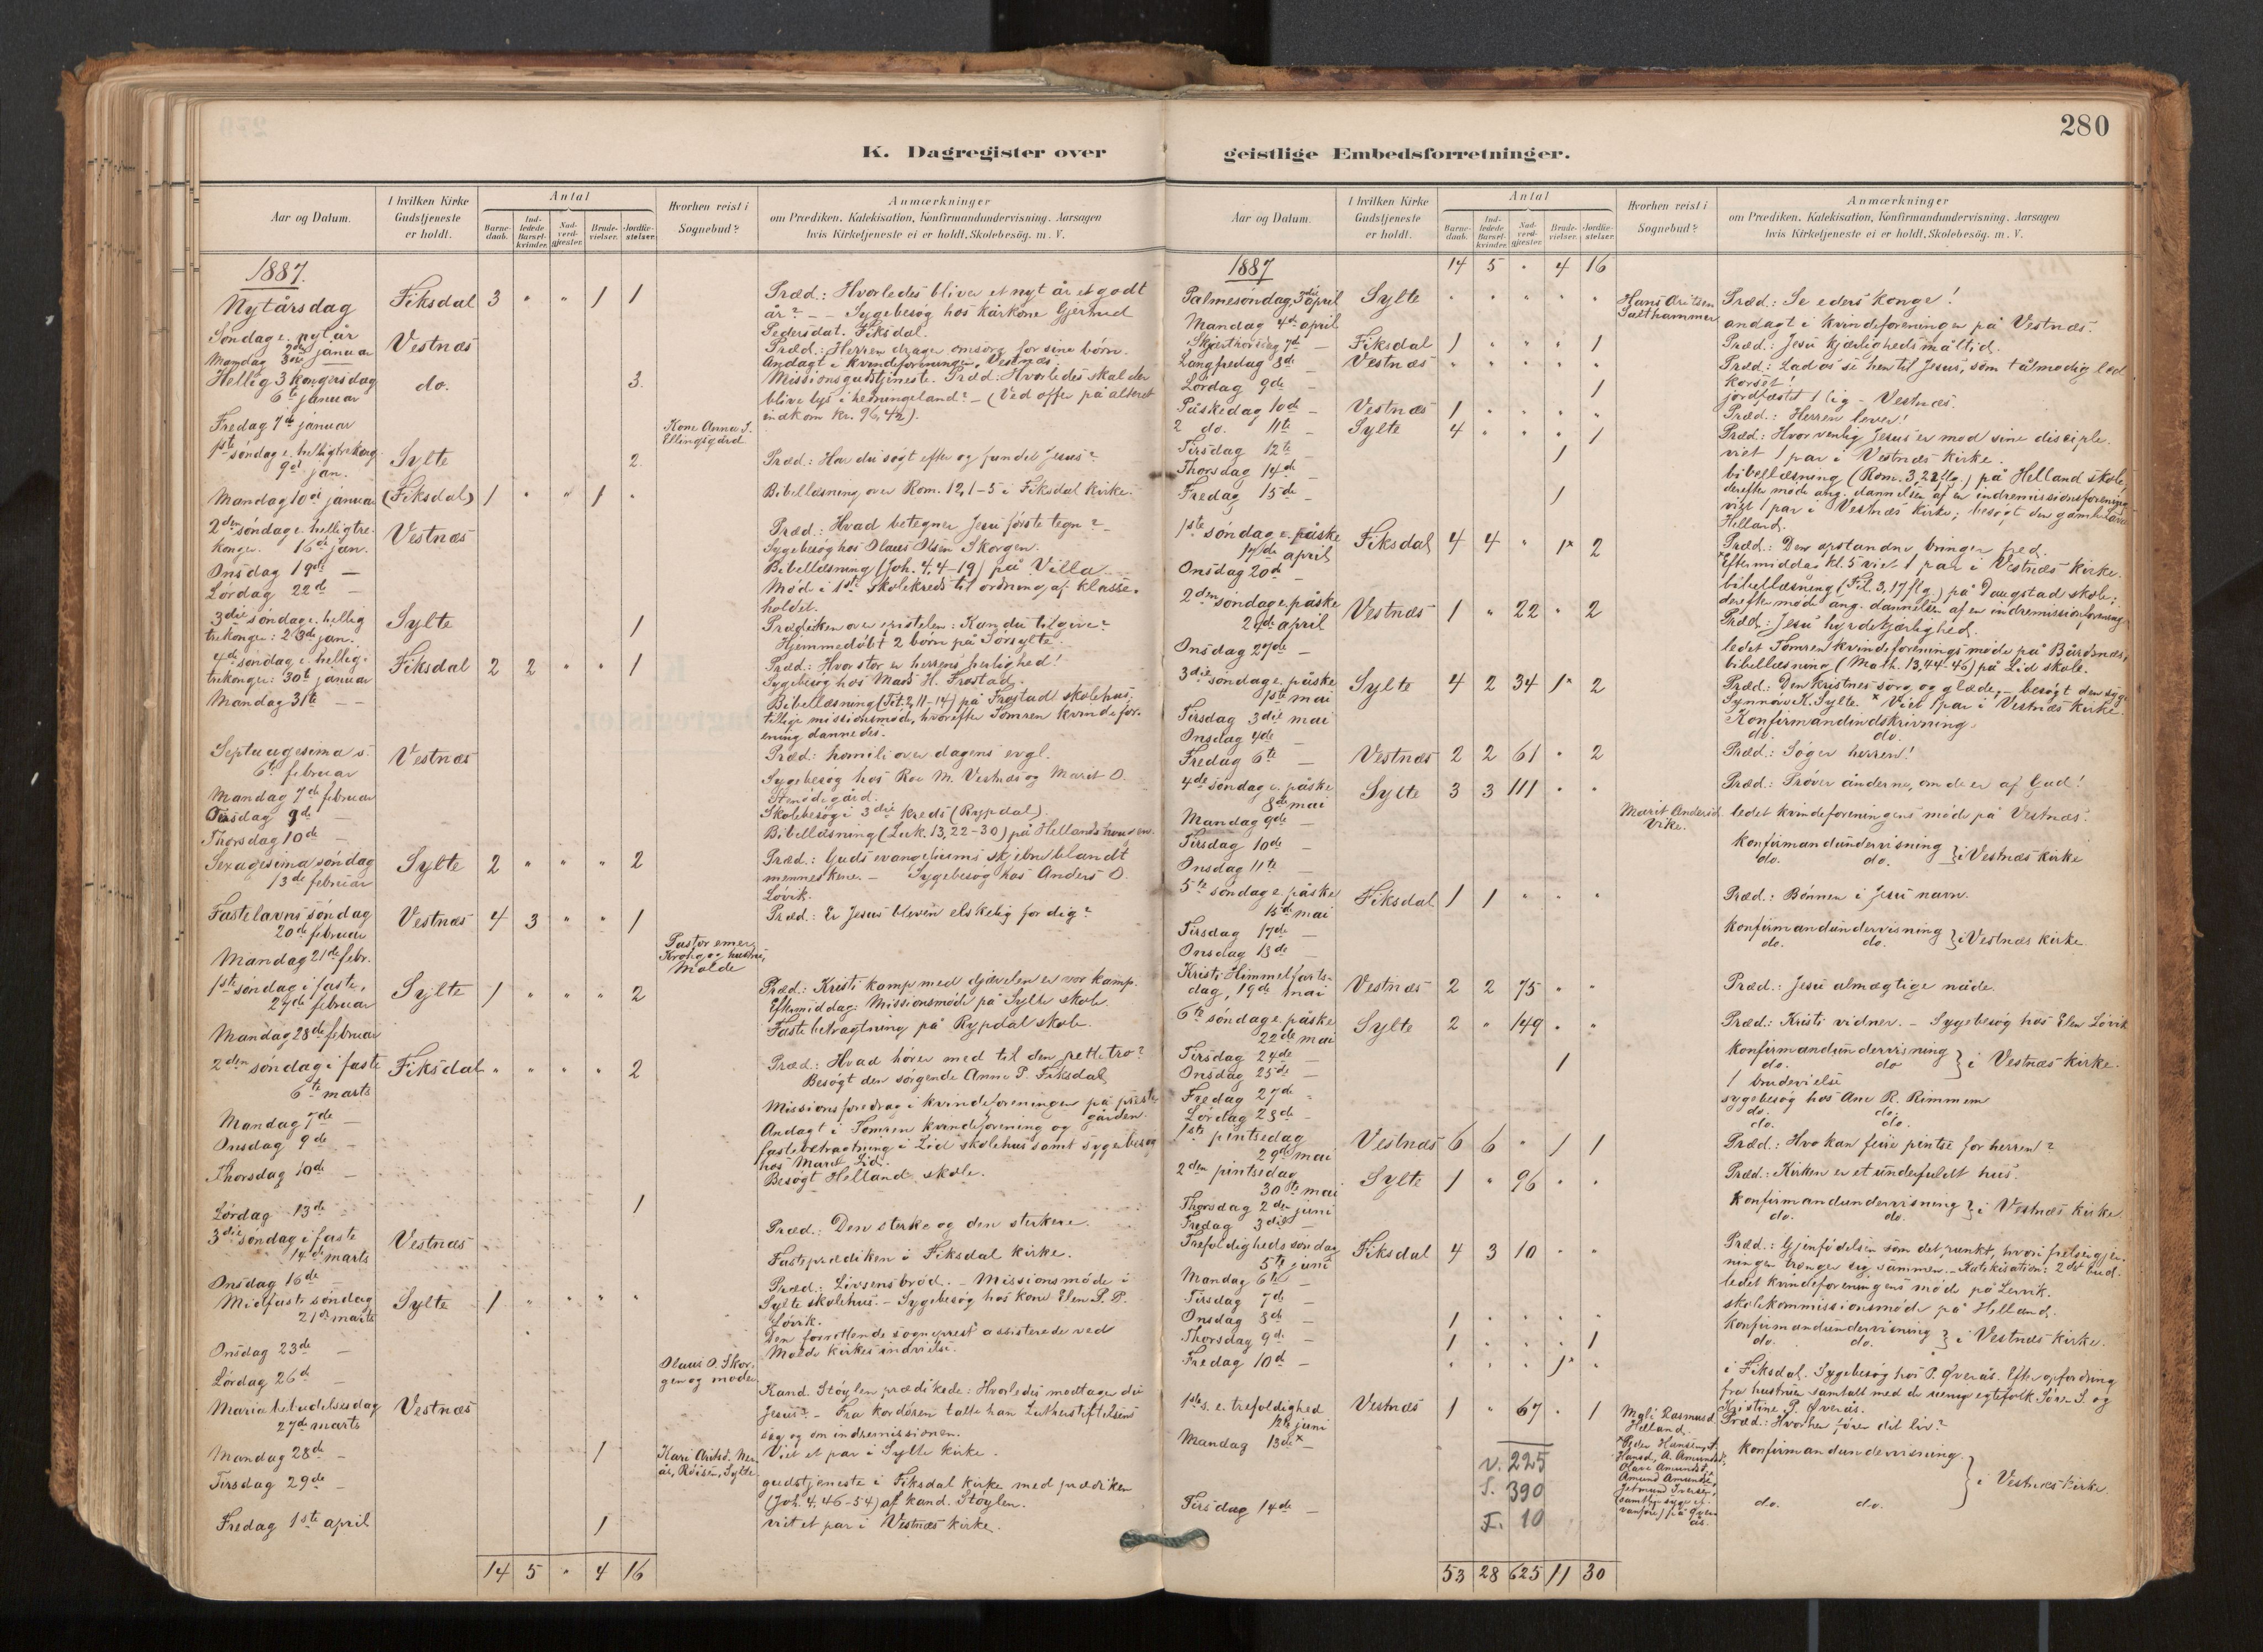 280
K. Dagregister over geistlige Embedsforretninger.
Aar og Datum.
I hvilken Kirke Gudstjeneste er holdt.
Antal
Barnedaab.
Indledede Barselkvinder.
Nadverdgjester.
Brudevielser.
Jordfæstelser.
Hvorhen reist i Sognebud?
Anmærkninger
om Prædiken, Katekisation, Konfirmandundervisning, Aarsagen
hvis Kirketjeneste ei er holdt, Skolebesøg. m. V.
1887.
Nytårsdag Fiksdal 3 " " 1 1 Præd.: Hvorledes bliver et nyt år et godt
år? – – Sygebesøg hos kårkone Gjertrud
Pedersdat. Fiksdal.
Søndag e. nytår 2den januar Vestnæs Præd.: Herren drager omsorg for sine børn.
Mandag 3die januar Andagt i kvindeforeningen, Vestnæs.
Hellig 3 kongersdag 6te januar do. 3. Missionsgudstjeneste. Præd: Hvorledes skal der
blive lys i hedningeland? – (Ved offer på alteret
indkom kr. 96,42).
Fredag 7de januar Kone Anna I. Ellingsgård
1ste søndag e. helligtrekong. 9de jan. Sylte 2. Præd: Har du søgt efter og fundet Jesus?
Mandag 10de januar (Fiksdal) 1 " " 1 " Bibellæsning over Rom. 12,1-5 i Fiksdal kirke.
2den søndag e. helligtrekonger. 16de jan. Vestnæs Præd: Hvad betegner Jesu første tegn? –
Sygebesøg hos Olaus Olsen Skorgen.
Onsdag 19de — Bibellæsning (Joh. 4,4-19) på Villa
Lørdag 22de — Mød i 1ste skolekreds til ordning af klasseholdet.
3die søndag e. helligtrekonger: 23de jan. Sylte 1 Prædiken over epistelen: Kan du tilgive?
Hjemmedøbt 2 børn på Sørsylte.
4de søndag e. helligtrekonger: 30te januar Fiksdal 2 2 " " 1 Præd: Hvor stor er herrens herlighed!
Sygebesøg hos Mads H. Frostad.
Mandag 31te — Bibellæsning (Tit. 2,11-14) på Frostad skolehus,
tillige missionsmøde, hvorefter Tomren kvindeforening
dannedes.
Septuagesima s. 6te februar Vestnæs Præd: homili over dagens evgl.
Mandag 7de februar Sygebesøg hos Roe M. Vestnæs og Marit O.
Stenødegård.
Onsdag 9de — Skolebesøg i 3die kreds (Rypdal).
Thorsdag 10de — Bibellæsning (Luk. 13,22-30) på Hellands
Sexagesima søndag 13de februar Sylte 2 " " " 2 Præd: Guds evangeliums skjebne blandt
menneskene. – Sygebesøg hos Anders O.
Løvik.
Fastelavns søndag 20de februar Vestnæs 4 3 " " 1 Præd: Er Jesus bleven elskelig for dig?
Mandag 21de febr. Pastor emer. Krohg og hustru, Molde
1ste søndag i faste, 27de februar Sylte 1 " " " 2 Præd: Kristi kamp med djævelen er vor kamp.
Eftermiddag: Missionsmøde på Sylte skole.
Mandag 28de februar Fastebetragtning på Rypdal skole.
2den søndag i faste 6te marts Fiksdal " " " " 2 Præd: Hvad hører med til den rette tro?
Besøgt den sørgende Anne P. Fiksdal
Mandag 7de — Missionsforedrag i kvindeforeningen på prestegården.
Onsdag 9de — Andagt i Tomren kvindeforening og
fastebetragtning i Lid skolehus samt sygebesøg
hos Maret Lid.
Thorsdag 10de — Besøgt Helland skole.
Lørdag 13de 1
3die søndag i faste 14de marts Vestnæs Præd: Den sterke og den sterkere.
Onsdag 16de — Fasteprædiken i Fiksdal kirke.
Midfaste søndag 21de marts Sylte 1 " " " " Præd: Livsens brød. – Missionsmøde i
Sylte skolehus. – Sygebesøg hos kone Elen S. P.
Løvik.
Onsdag 23de — Den forrettende sogneprest assisterede ved
Molde kirkes indvielse.
Lørdag 26de Olaus O. Skorgen og moder
Mariæ bebudelsesdag 27de marts Vestnæs Kand. Støylen prædikede: Hvorledes modtager du
Jesus? – Fra kordøren talte han Lutherstiftelsens
sag og om indremissionen.
Mandag 28de — 1 Viet et par i Sylte kirke.
Tirsdag 29de — gudstjeneste i Fiksdal kirke med prædiken
(Joh. 4,46-54) af kand. Støylen.
Fredag 1ste april 1 viet et par i Vestnæs kirke.
14 5 " 4 16
Aar og Datum.
I hvilken Kirke Gudstjeneste er holdt.
Antal
Barnedaab.
Indledede Barselkvinder.
Nadverdgjester.
Brudevielser.
Jordfæstelser.
Hvorhen reist i Sognebud?
Anmærkninger
om Prædiken, Katekisation, Konfirmandundervisning, Aarsagen
hvis Kirketjeneste ei er holdt, Skolebesøg. m. V.
1887 14 5 " 4 16
Palmesøndag, 3die april Sylte " " " " " Hans Gælthammer Præd: Se eders konge!
Mandag 4de april andagt i kvindeforeningen på Vestnæs.
Skjærthorsdag 7de — Fiksdal 1 " " " 1 Præd: Jesu kjærlighedsmåltid.
Langfredag 8de Vestnæs " " " " " Præd: Lad os se hen til Jesus, som tålmodig led
korset!
Lørdag 9de — 1 jordfæstet 1 lig – Vestnæs.
Påskedag 10de — Vestnæs 1 " " " " Præd: Herren lever!
2 do. 11te — Sylte 4 " " " 1 Præd: Hvor venlig Jesus er mod sine disciple.
Tirsdag 12te — 1 viet 1 par i Vestnæs kirke.
Thorsdag 14de — bibellæsning (Rom. 3,22 flg.) på Helland skole,
derefter møde ang. dannelsen af en indremissionsforening
Fredag 15de — 1 viet 1 par i Vestnæs kirke; besøgt den gamle
Helland.
1ste søndag e. påske 17de april Fiksdal 4 4 " 1* 2 Præd: Den opstandne bringer fred.
*Eftermiddag kl. 5 viet 1 par i Vestnæs kirke.
Onsdag 20de — bibellæsning (Fil. 3,17 flg.) på Daugstad skole;
derefter møde ang. dannelsen af en indremissionsforening.
2den søndag e. påske 24de april Vestnæs 1 " 22 " 2 Præd: Jesu hyrdekjærlighed.
Onsdag 27de — ledet Tomren kvindeforenings møde på Bårdsnæs,
bibellæsning (Math. 13,44-46) på Lid skole.
3die søndag e. påske 1ste mai Sylte 4 2 34 1* 2 Præd: Den kristnes sorg og glæde. – besøgt den syge
Synnøve K. Sylte. *Viet 1 par i Vestnæs kirke.
Tirsdag 3die mai Konfirmandindskrivning.
Onsdag 4de — do. do.
Fredag 6te — Vestnæs 2 2 61 " 2 Præd: Søger herren!
4de søndag e. påske 8de mai Sylte 3 3 111 " " Præd: Prøver ånderne, om de er af Gud!
Mandag 9de — Marit Andersd. Vike. ledet kvindeforeningens møde på Vestnæs.
Tirsdag 10de — konfirmandundervisning
Onsdag 11te — do. do. } i Vestnæs kirke
5te søndag e. påske 15de mai Fiksdal 1 1 " " " Præd: Bønnen i Jesu navn.
Tirsdag 17de — konfirmandundervisning
Onsdag 18de — do. do. } i Vestnæs kirke
Kristi Himmelfartsdag, 19de mai Vestnæs 2 2 75 " " Præd: Jesu almægtige nåde.
6te søndag e. påske 22de mai Sylte 2 " 149 " " Præd: Kristi vidner. – Sygebesøg hos Elen Løvik
Tirsdag 24de — konfirmandundervisning
Onsdag 25de — 1 do. do } i Vestnæs kirke.
1 brudevielse
Fredag 27de " sygebesøg hos Ane R. Rimmem
Lørdag 28de do. do.
do. do.
1ste pintsedag 29de mai Vestnæs 6 6 " 1 1 Præd: Hvo kan feire pintse for herren?
2den pintsedag 30te mai Sylte 1 " 96 " " Præd: Kirken er et underfuldt hus.
Thorsdag 2den juni konfirmandundervisning
Fredag 3die do. do. } i Vestnæs kirke
Trefoldigheds søndag 5te juni Fiksdal 4 3 10 " " Præd: Gjenfødelsen som det punkt, hvori frelsesgjerningen
trænger sig sammen. – Katekisation: 2det bud.
Mandag 6te — ledet kvindeforeningens møde på Lervik.
Tirsdag 7de — skolekommissionsmøde på Helland.
Onsdag 8de — 1 " " " " konfirmandundervisning
Thorsdag 9de — 1 " " " 1 do. do. } i Vestnæs kirke.
Fredag 10de — " " " 1* " i Fiksdal. Sygebesøg hos P. Øverås. Efter opfordring
fra hustruen samtalt med de uenige egtefolk Søren S. og
Kristine P. Øverås.
1ste s. e. trefoldighed 12te juni Vestnæs 1 " 67 " 1 Mali Rasmusd. Helland. Præd: Hvorhen fører dit liv?
Mandag 13de* — konfirmandundervisning
Tirsdag 14de — do. do. } i Vestnæs kirke
V. 225
S. 390
F. 10
53 28 625 11 30